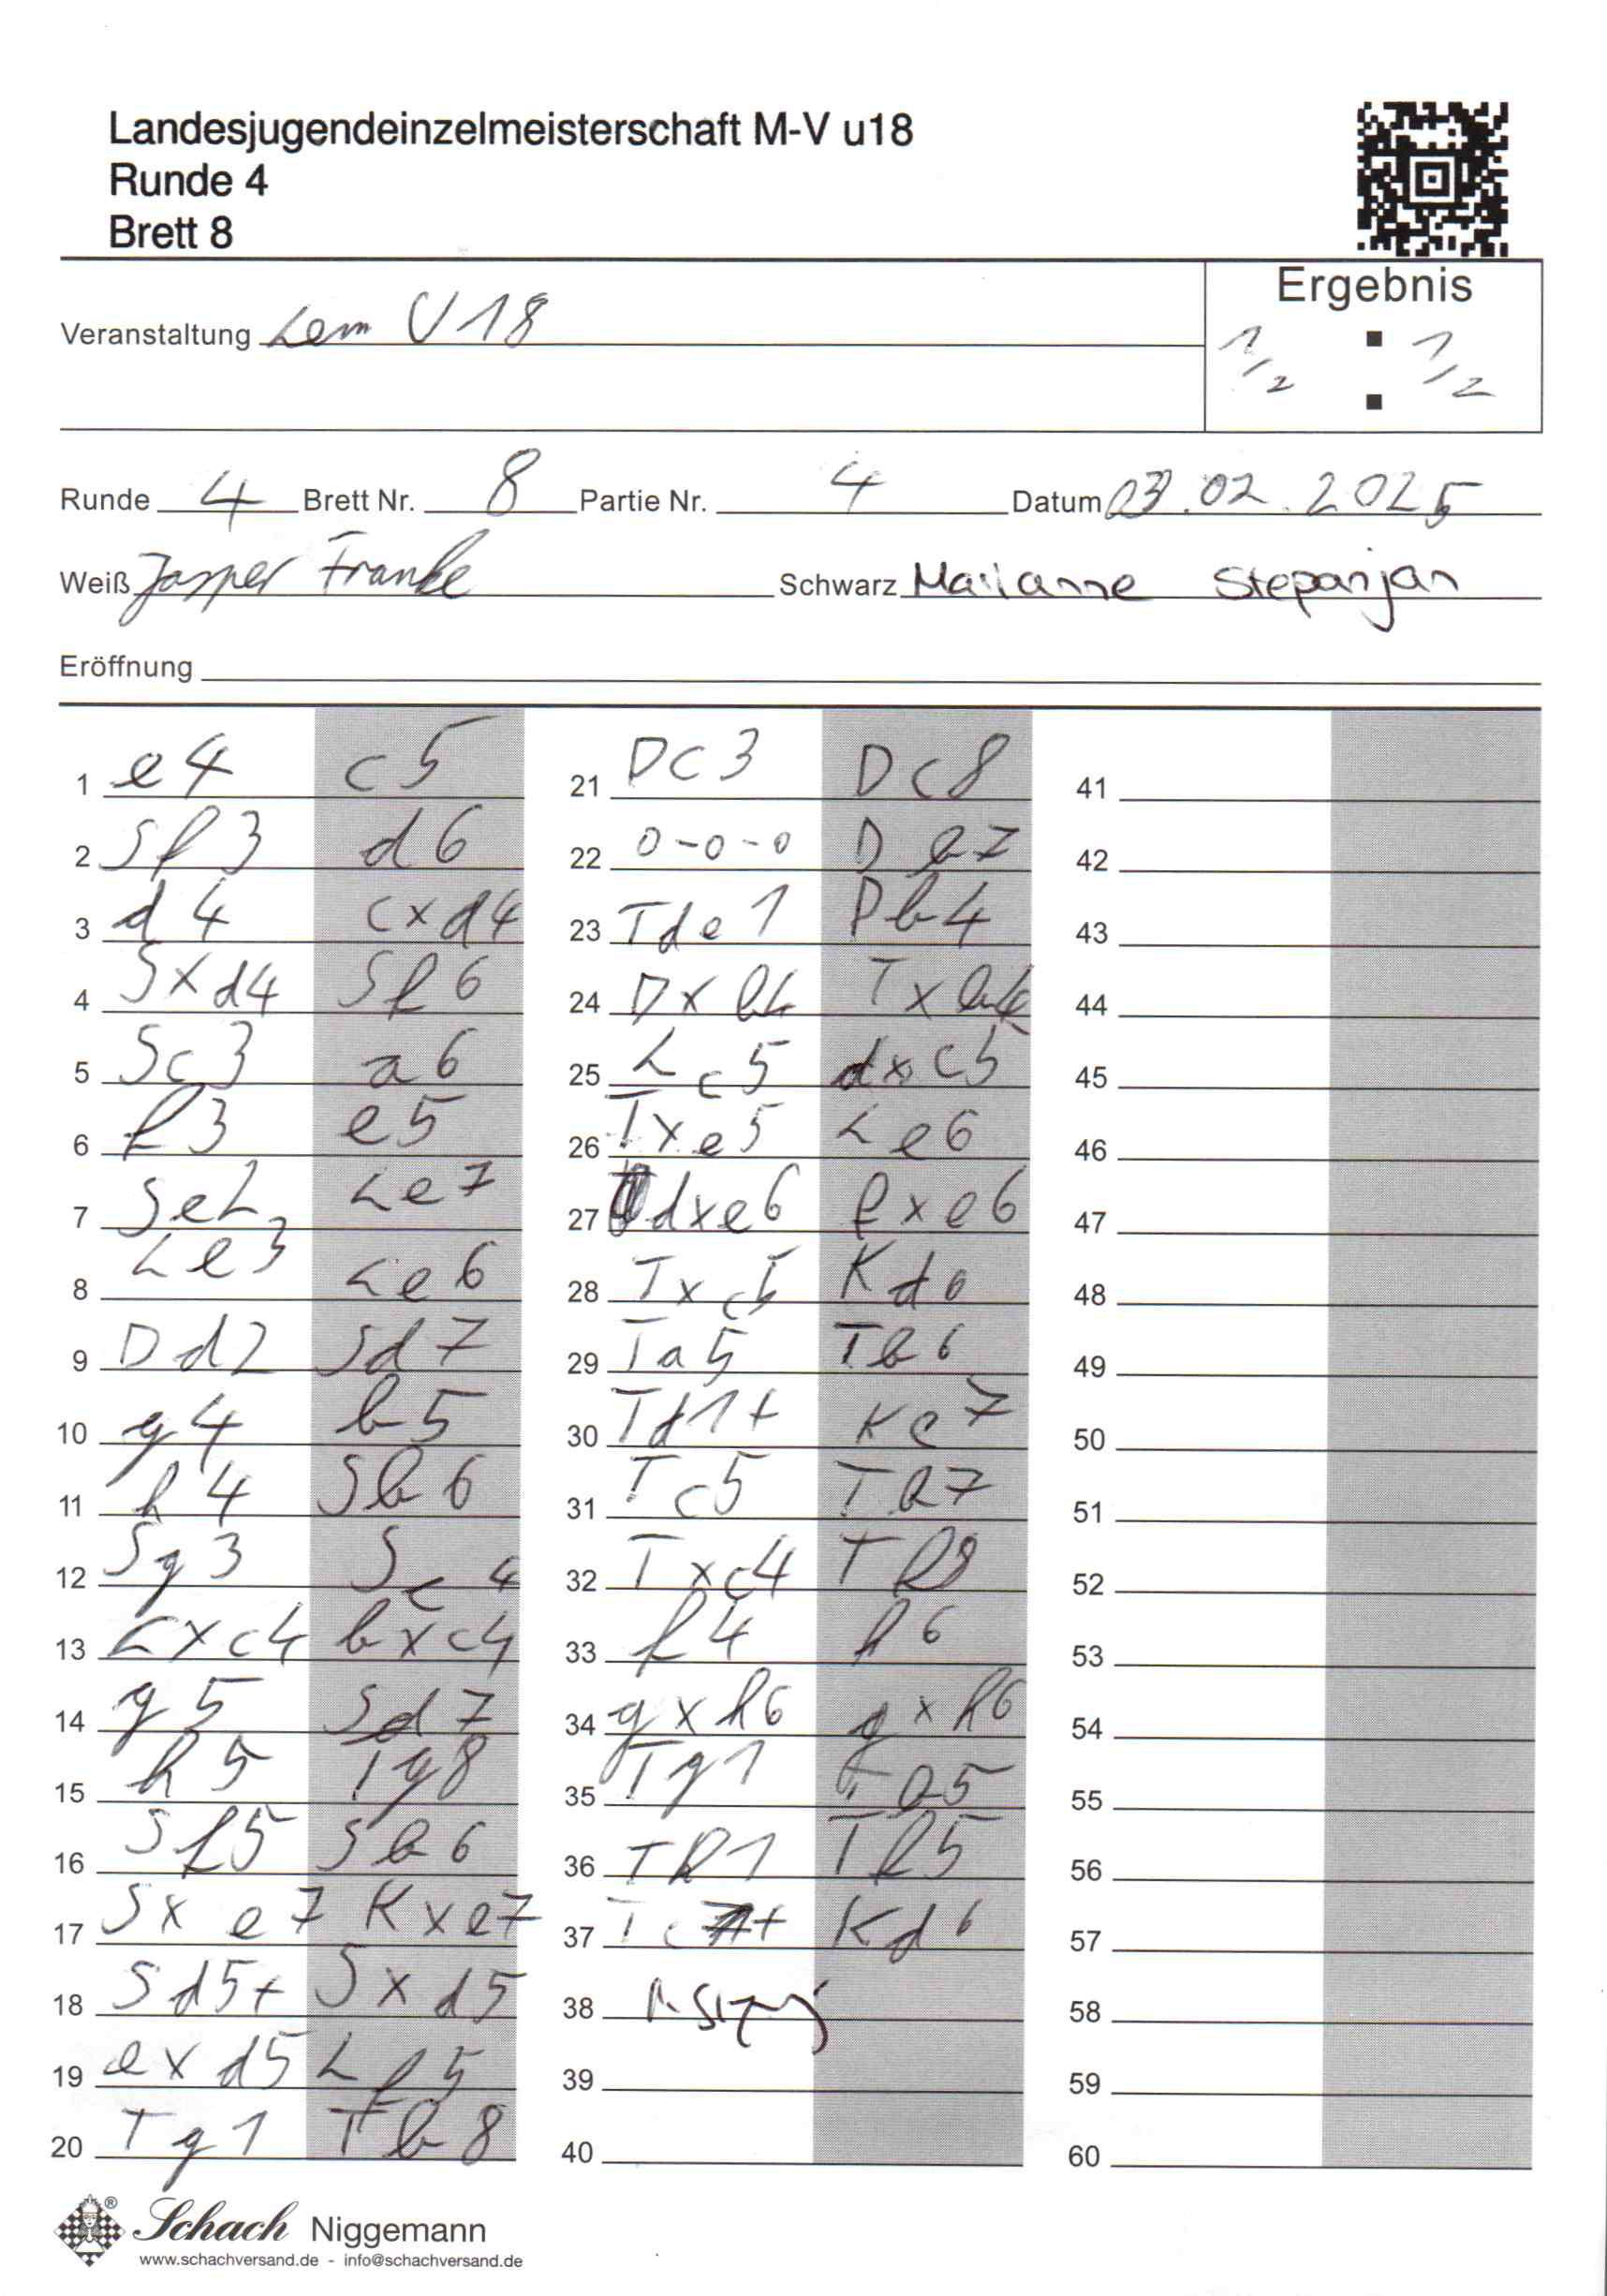 Landesjugendeinzelmeisterschaft M-V u18
Runde 4
Brett 8
Ergebnis
Veranstaltung Lem U18
1/2 : 1/2
Runde 4 Brett Nr. 8 Partie Nr. 4 Datum 03.02.2025
Weiß Jasper Franke Schwarz Marianne Stepanjan
Eröffnung
1 e4 c5 21 Dc3 Dc8 41
2 Sf3 d6 22 0-0-0 Db7 42
3 d4 cxd4 23 Tde1 Db4 43
4 Sxd4 Sf6 24 Dxb4 Txb4 44
5 Sc3 a6 25 Lc5 dxc5 45
6 f3 e5 26 Txe5 Le6 46
7 Se2 Le7 27 dxe6 fxe6 47
8 Le3 Le6 28 Txc5 Kd6 48
9 Dd2 Sd7 29 Ta5 Tb6 49
10 g4 b5 30 Td1+ Kc7 50
11 h4 Sb6 31 Tc5 Tb7 51
12 Sg3 Sc4 32 Txc4 Tf8 52
13 Lxc4 bxc4 33 f4 h6 53
14 g5 Sd7 34 gxh6 gxh6 54
15 h5 Tg8 35 Tg1 55
16 Sf5 Sb6 36 Th1 Tf5 56
17 Sxe7 Kxe7 37 Kd6 57
18 Sd5+ Sxd5 38 58
19 exd5 Lf5 39 59
20 Tg1 Tb8 40 60
Schach Niggemann
www.schachversand.de - info@schachversand.de